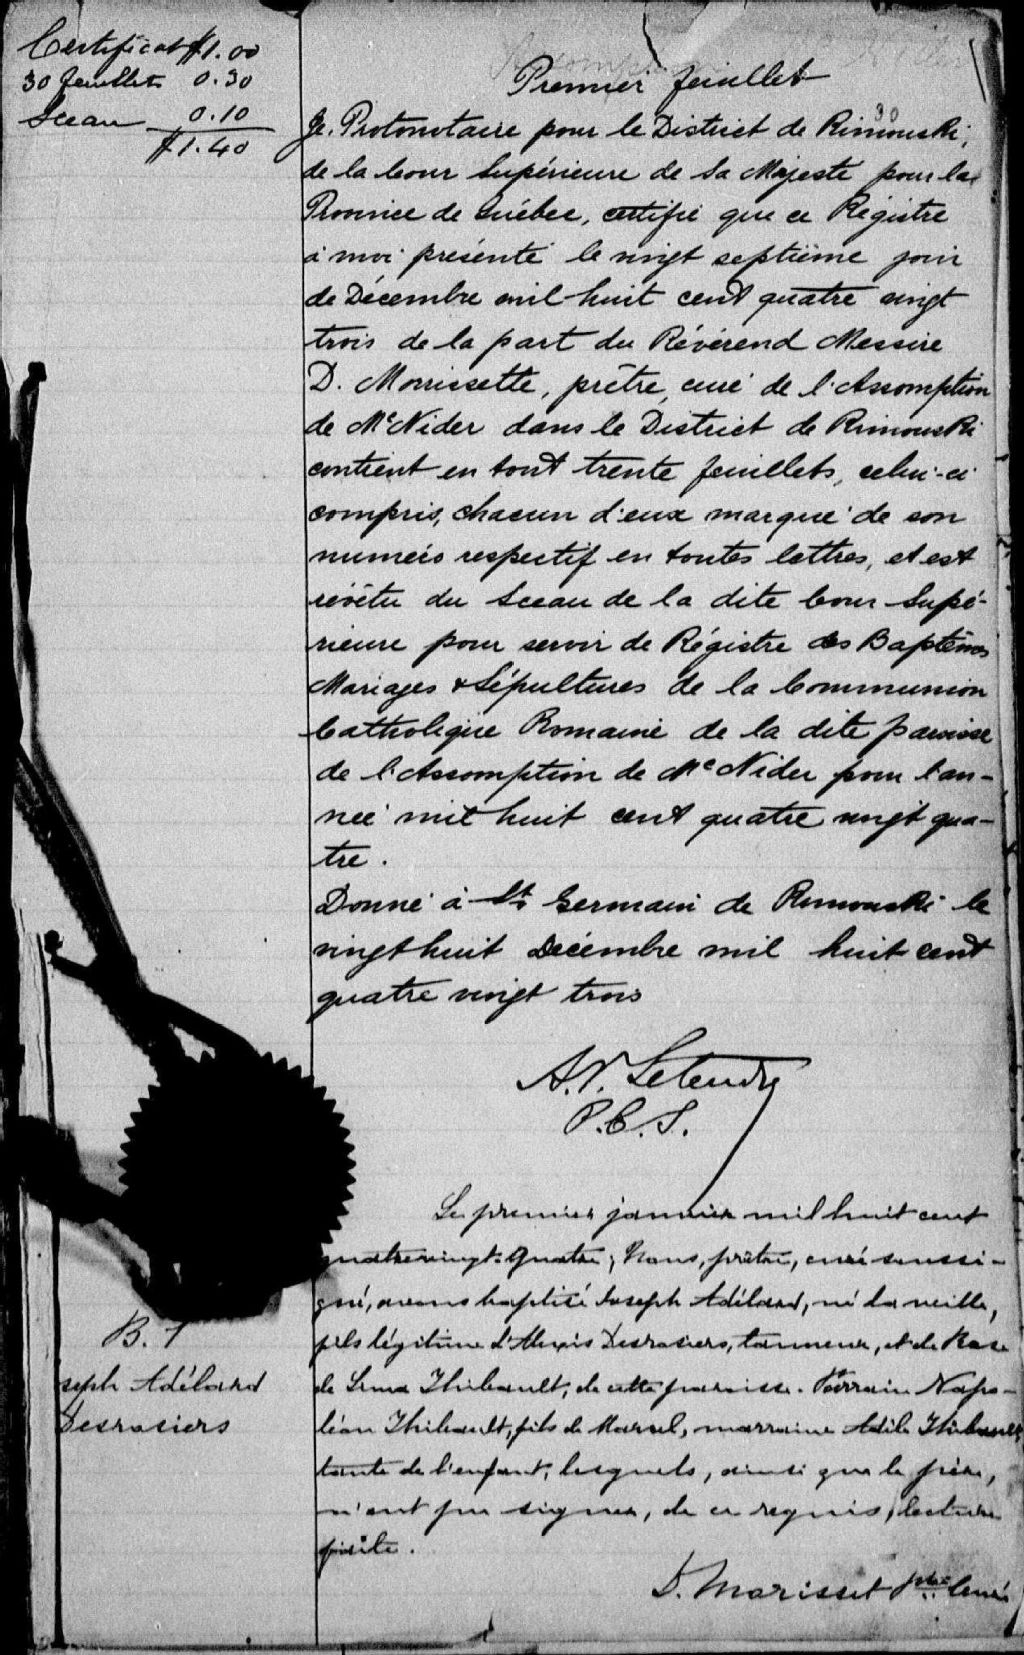 Certificat $1.00
30 feuillets 0.30
Sceau 0.10
$1.40
Premier feuillet
30
Je, Protonotaire pour le District de Rimouski,
de la Cour Supérieure de Sa Majesté pour la
Province de Québec, certifie que ce Régistre
à moi présenté le vingt septième jour
de Décembre mil huit cent quatre vingt
trois de la part du Révérend Messire
D. Morrissette, prêtre, curé de l'Assomption
de McNider dans le District de Rimouski
contient en tout trente feuillets, celui-ci
compris, chacun d'eux marqué de son
numéro respectif en toutes lettres, et est
revêtu du Sceau de la dite Cour Supé-
rieure pour servir de Régistre des Baptêmes
Mariages & Sépultures de la Communion
Catholique Romaine de la dite paroisse
de l'Assomption de McNider pour l'an-
née mil huit cent quatre vingt qua-
tre.
Donné à St Germain de Rimouski le
vingt huit Décembre mil huit cent
quatre vingt trois
A.P. Letendre
P.C.S.
Le premier janvier mil huit cent
quatre vingt-quatre, Nous, prêtre, curé soussi-
gné, avons baptisé Joseph Adélard, né la veille,
fils légitime d'Alexis Desrosiers, tanneur, et de Rose
de Lima Thibault, de cette paroisse. Parrain Napo-
léon Thibault, fils de Marcel, marraine Adèle Thibault,
tante de l'enfant, lesquels, ainsi que le père,
n'ont pu signer, de ce requis, lecture
faite.
D. Morisset ptre Curé
B. 1
seph Adélard
Desrosiers